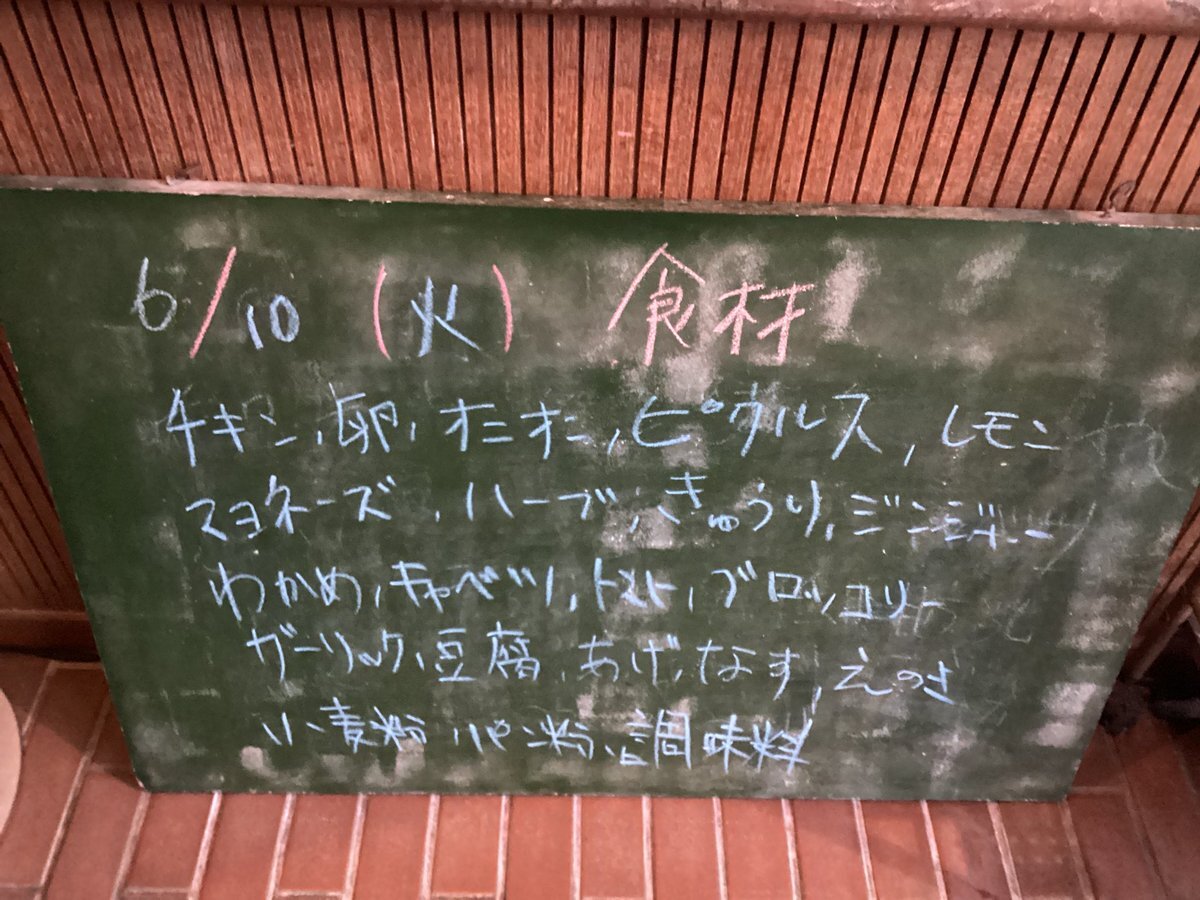 6/10 (火) 食材
チキン、卵、オニオン、ピクルス、レモン
マヨネーズ、ハーブ、きゅうり、ジンジャー
わかめ、キャベツ、トマト、ブロッコリー
ガーリック、豆腐、あげ、なす、えのき
小麦粉、パン粉、調味料